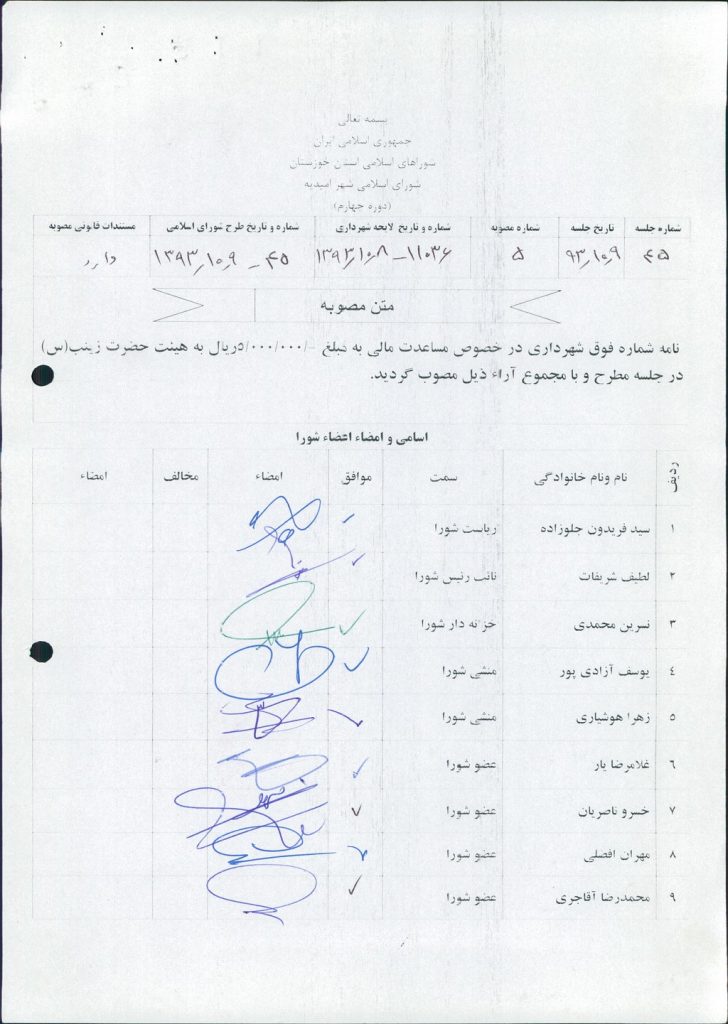 بسمه تعالی
جمهوری اسلامی ایران
شوراهای اسلامی استان خوزستان
شورای اسلامی شهر امیدیه
(دوره چهارم)
شماره جلسه تاریخ جلسه شماره مصوبه شماره و تاریخ لایحه شهرداری شماره و تاریخ طرح شورای اسلامی مستندات قانونی مصوبه
۴۵ ۹۳/۱۰/۹ ۵ ۱۱۰۳۶ - ۱۳۹۳/۱۰/۸ ۴۵ - ۱۳۹۳/۱۰/۹ دارد
متن مصوبه
نامه شماره فوق شهرداری در خصوص مساعدت مالی به مبلغ -/۵/۰۰۰/۰۰۰ریال به هیئت حضرت زینب(س)
در جلسه مطرح و با مجموع آراء ذیل مصوب گردید.
اسامی و امضاء اعضاء شورا
ردیف نام ونام خانوادگی سمت موافق امضاء مخالف امضاء
۱ سید فریدون جلوزاده ریاست شورا
۲ لطیف شریفات نائب رئیس شورا
۳ نسرین محمدی خزانه دار شورا
۴ یوسف آزادی پور منشی شورا
۵ زهرا هوشیاری منشی شورا
۶ غلامرضا یار عضو شورا
۷ خسرو ناصریان عضو شورا
۸ مهران افضلی عضو شورا
۹ محمدرضا آقاجری عضو شورا